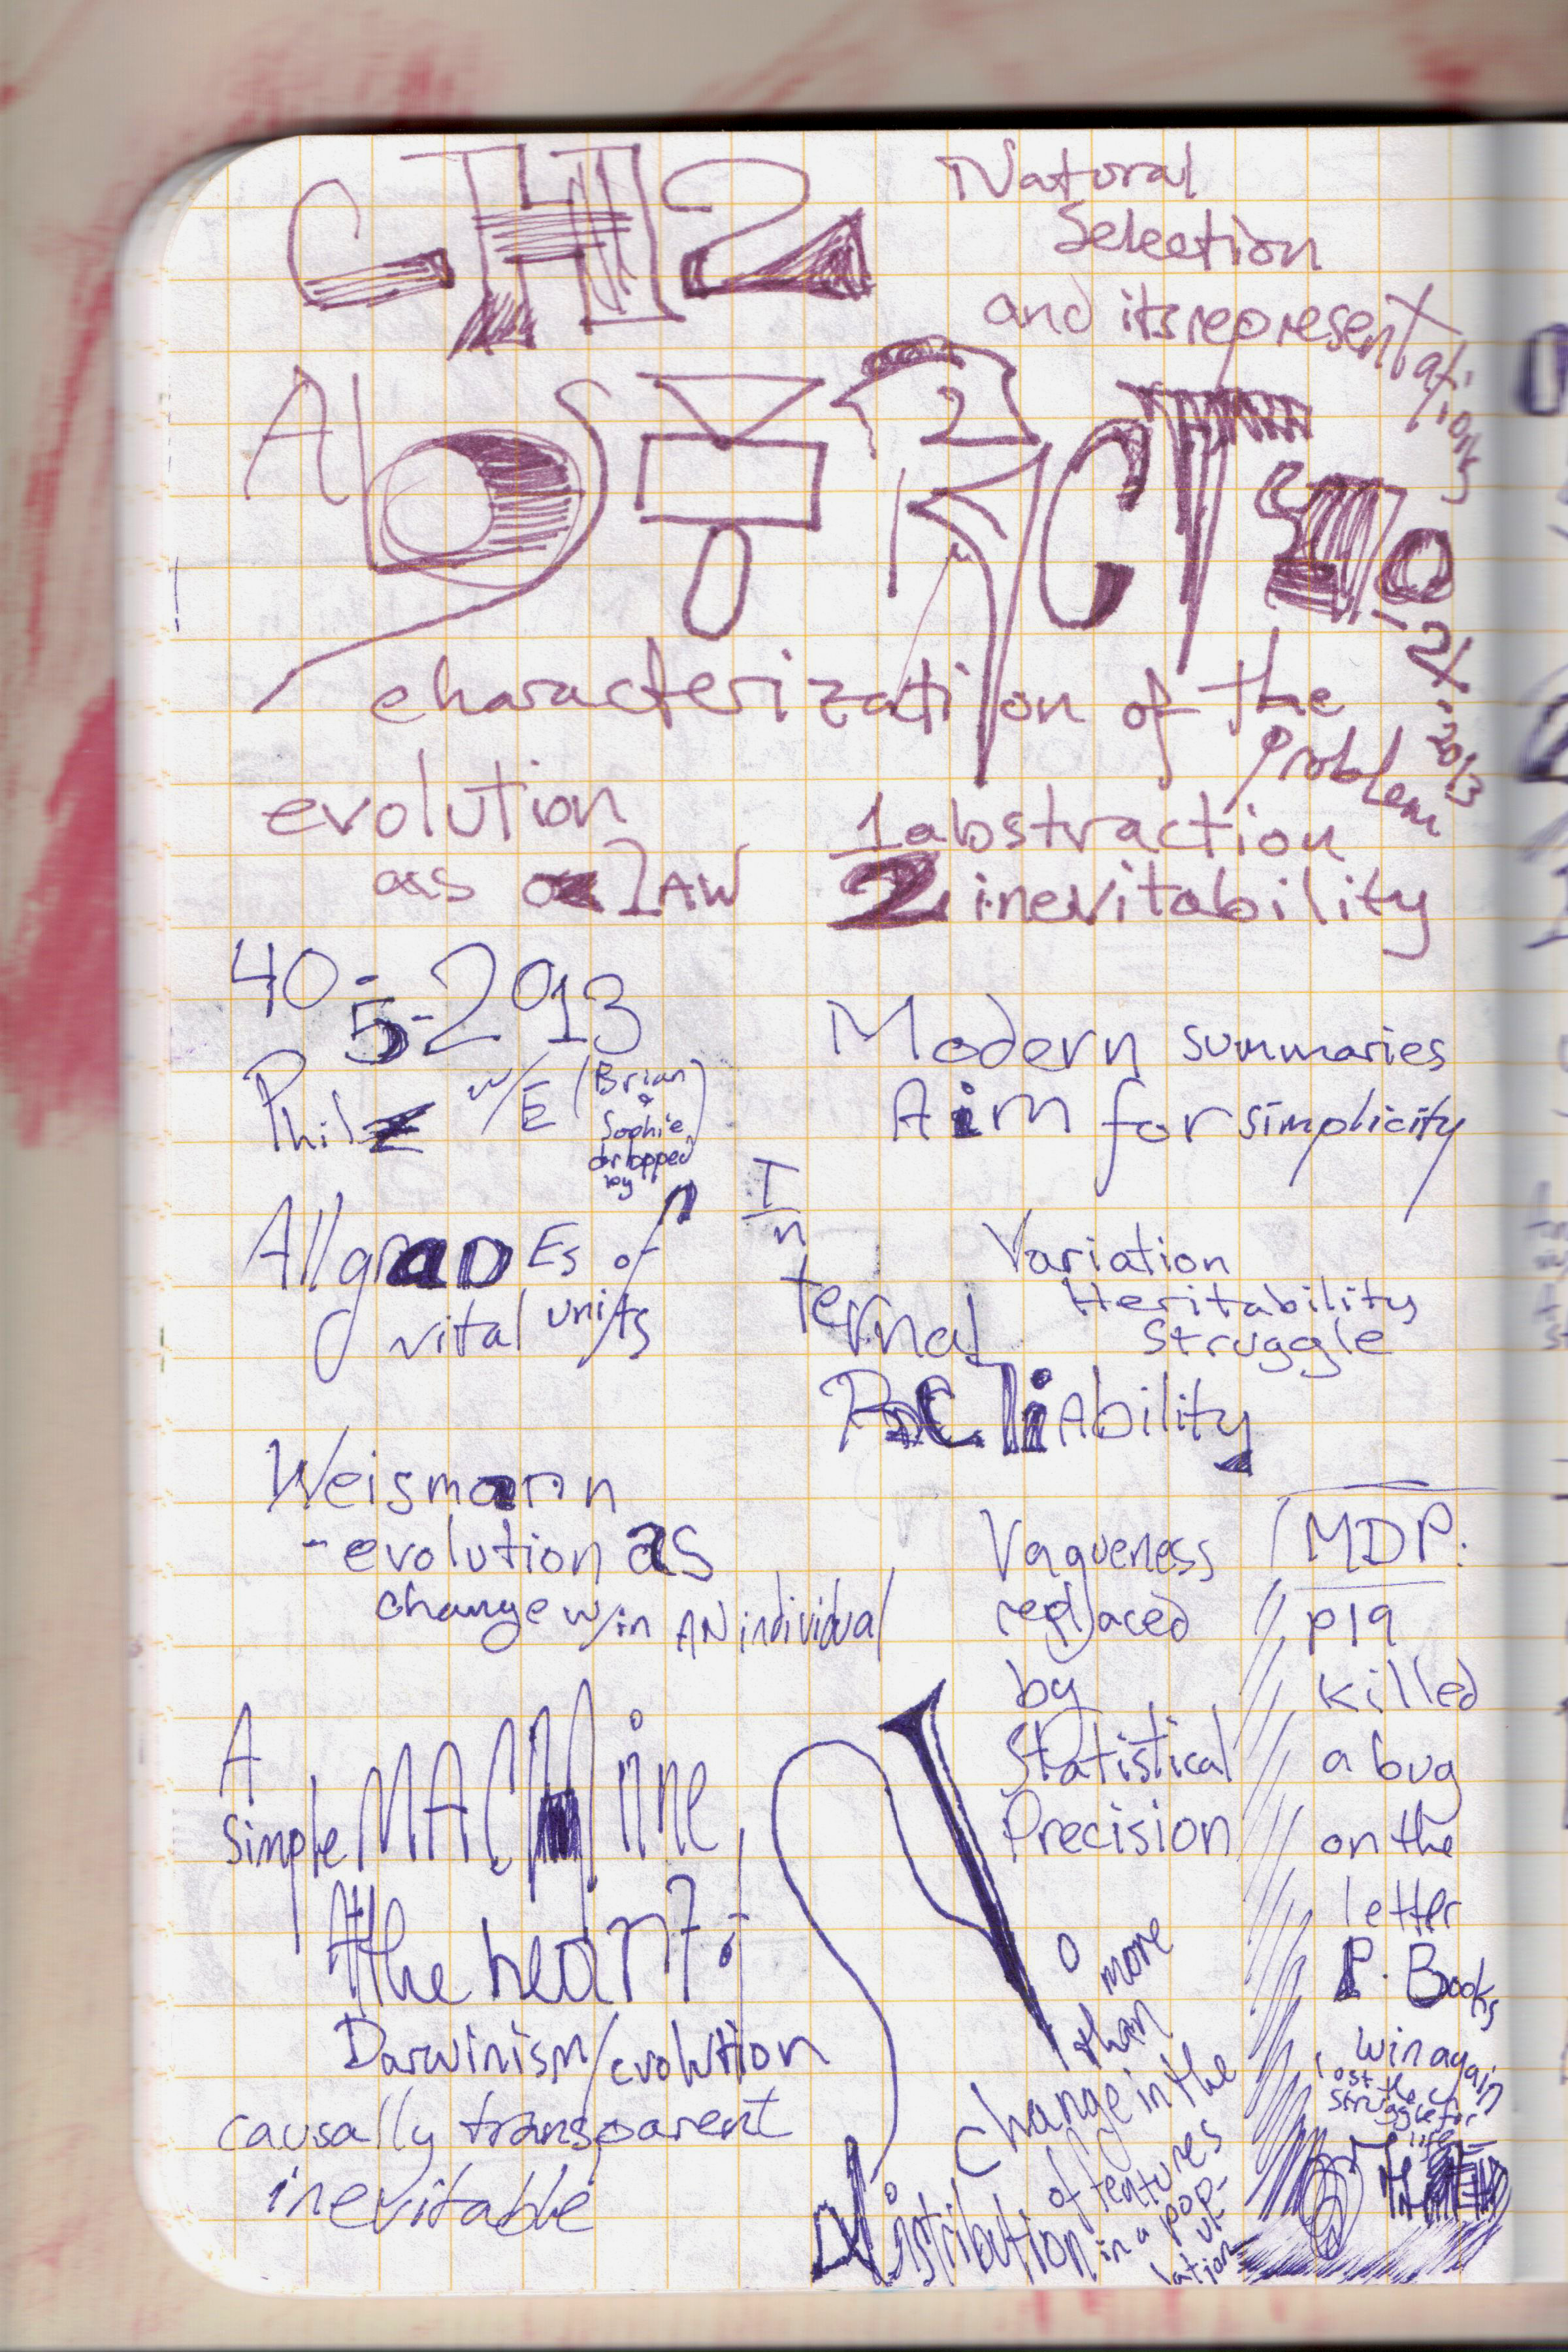 CH2
Natural
Selection
and its representations
AbSTRACT
40-2-2013
characterization of the
problem
evolution
as a LAW
1 abstraction
2 inevitability
40-5-2013
Philz w/ E (Brian
&
Sophie
dropped
by)
Modern summaries
Aim for simplicity
All gradEs of
vital units
In
ternal
Variation
Heritability
Struggle
ReliAbility
Weismann
- evolution as
change w/in AN individual
Vagueness
replaced
by
Statistical
Precision
MDP:
p19
killed
a bug
on the
letter
P. Books
win again
lost the
struggle for
life
A
simple MACHine
@ the heart of
Darwinism/evolution
causally transparent
inevitable
no more
than
change in the
distribution
of features
in a pop-
ul-
lation